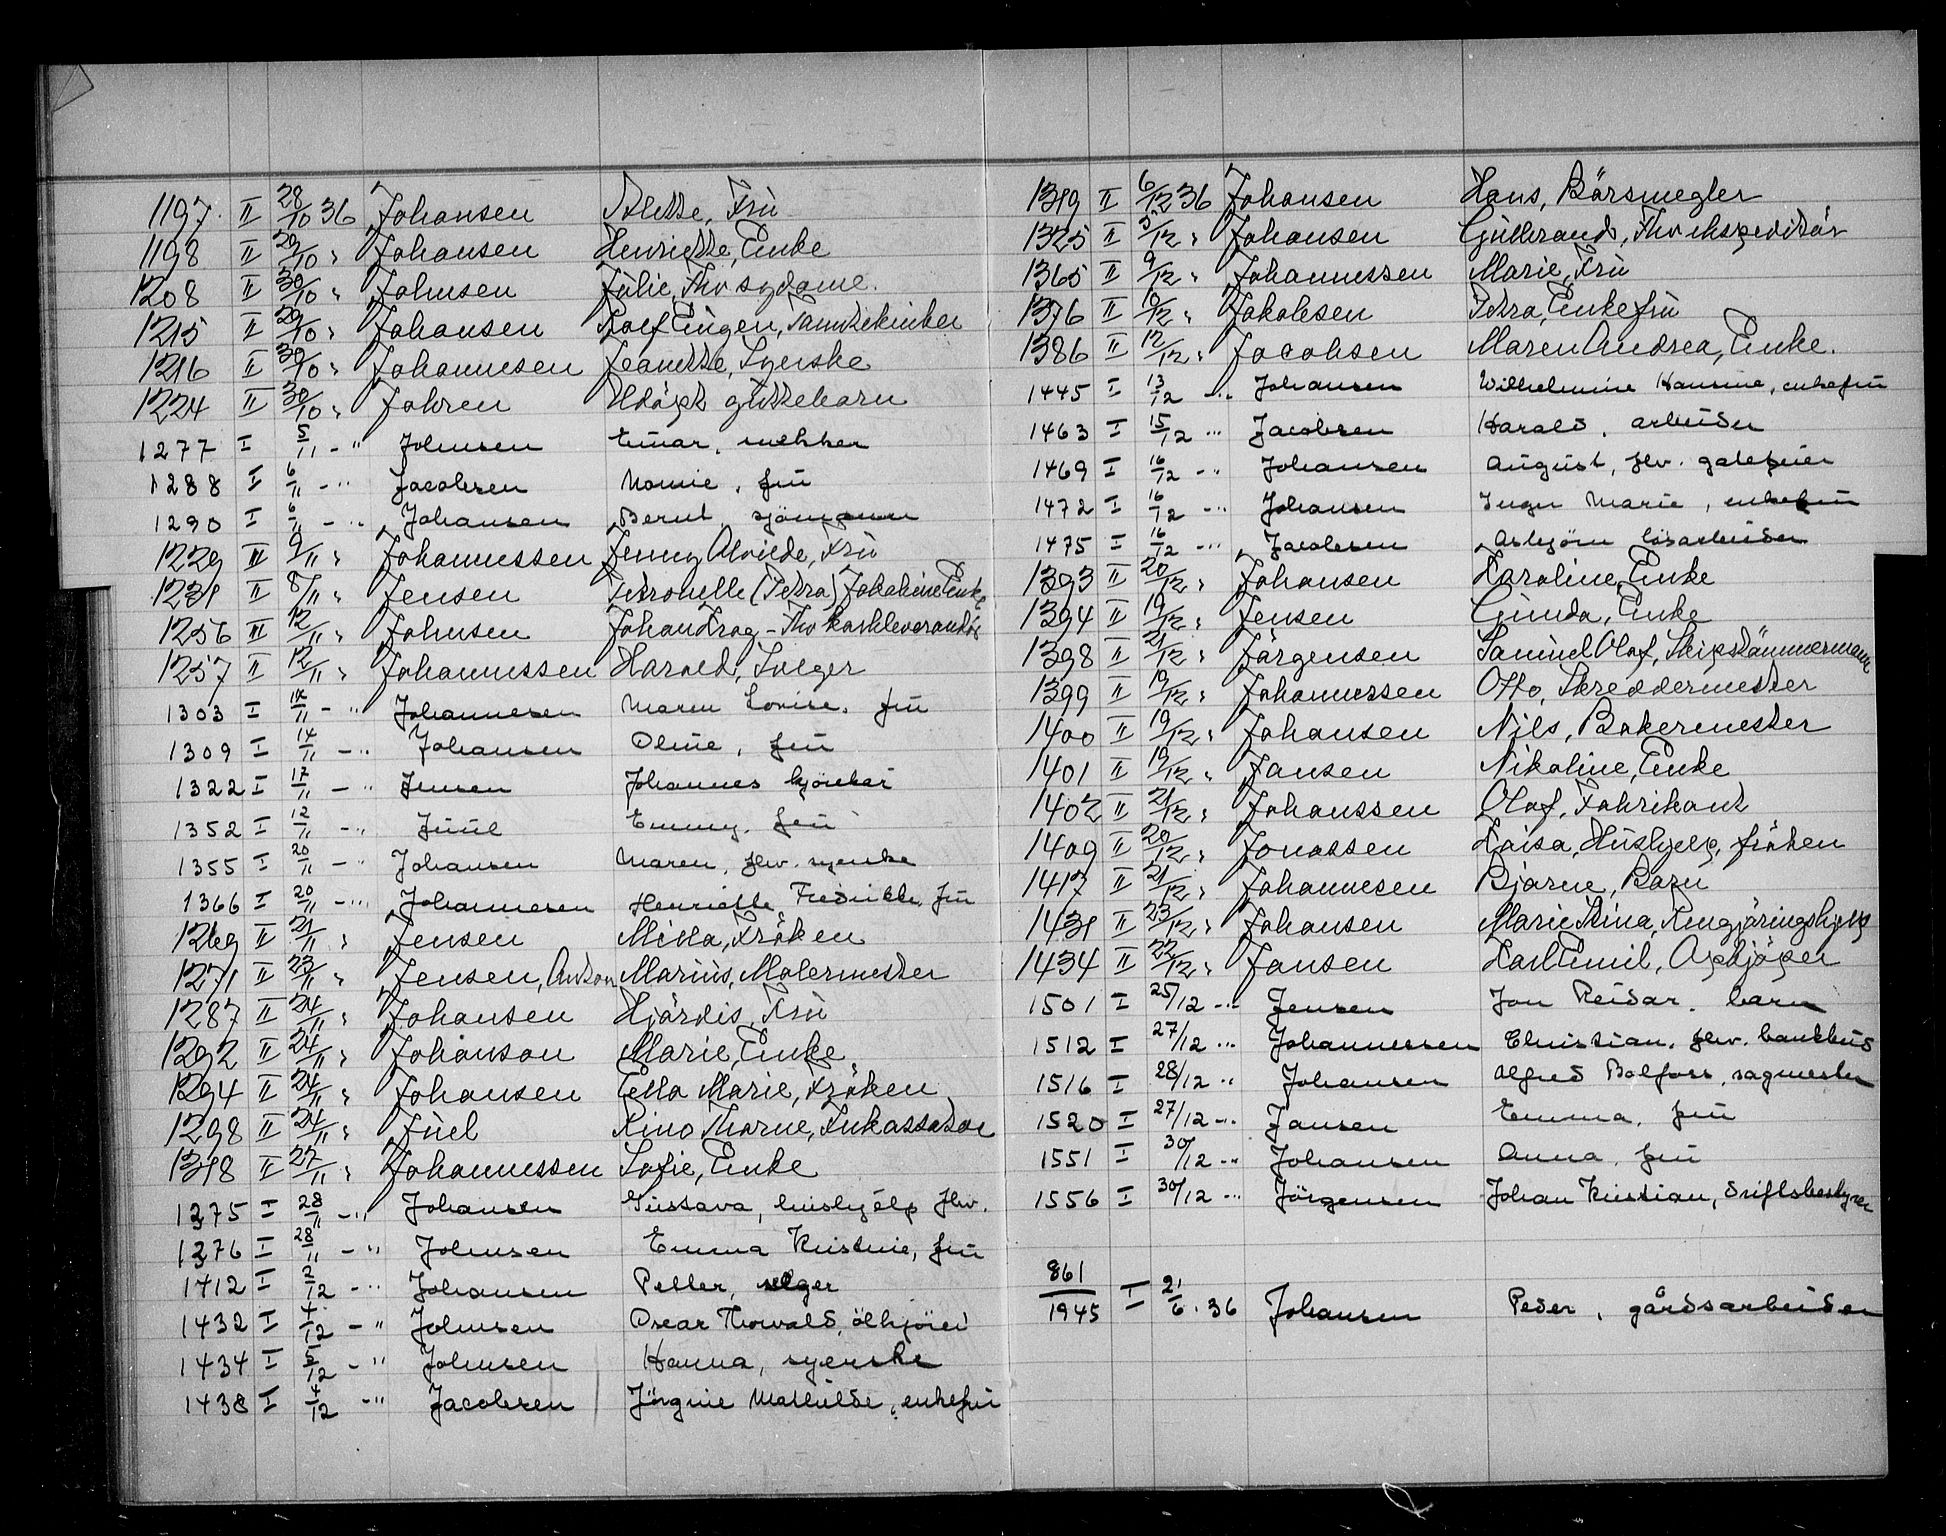 1197 II 28/10 36 Johansen Alette, Frü
1198 II 29/10 " Johansen Henriette, Enke
1208 II 30/10 " Johnsen Julie, Fhv sydame.
1215 II 29/10 " Johansen Rolf Eugen, Tanntekniker
1216 II 30/10 " Johannesen Jeanette, Syerske
1224 II 30/10 " Johren Udöpt guttebarn
1277 I 5/11 - " Johnsen Einar, snekker
1288 I 6/11 - " Jacobsen Nomie, frü
1290 I 6/11 - " Johansen Bernt sjömann
1229 II 9/11 " Johannessen Jenny Alviede, Frü
1231 II 8/11 " Jensen Petronelle (Petra) Jakobine Enke
1256 II 12/11 " Johnsen Johan Krag - Fhv
1257 II 12/11 " Johannessen Harald, Selger
1303 I 14/11 - " Johannesen Maren Lovise, frü
1309 I 14/11 - " Johansen Oline, frü
1322 I 17/11 - " Jensen Johannes
1352 I 12/11 - " Juul Emmy, frü
1355 I 20/11 - " Johansen Maren, fhv. syerske
1366 I 20/11 - " Johannesen Henriette Fredrikke, frü
1269 II 21/11 " Jensen Milla, Fröken
1271 II 23/11 " Jensen, Anton Marius, Malermester
1287 II 24/11 " Johansen Hjördis, Frü
1292 II 24/11 " Johanson Marie, Enke
1294 II 24/11 " Johansen Ella Marie, Fröken
1298 II 24/11 " Juel Kino Thorne, Inkassator
1318 II 27/11 " Johannessen Sofie, Enke
1375 I 28/11 - " Johansen Gustava, hushjelp fhv.
1376 I 28/11 - " Johnsen Emma Kristine, frü
1412 I 2/12 - " Johansen Petter, selger
1432 I 4/12 - " Johnsen Oscar Thorvald, ölkjörer
1434 I 5/12 - " Johnsen Hanna, syerske
1438 I 4/12 - " Jacobsen Jörgine Mathilde, enkefrü
1319 II 6/12 36 Johansen Hans, Börsmegler
1325 II 5/12 " Johansen Gulbrand, Fhv ekspeditör
1365 II 9/12 " Johannessen Marie, Frü
1376 II 10/12 " Jakobsen Petra, Enkefrü
1386 II 12/12 " Jacobsen Maren Andrea, Enke.
1445 I 13/12 - " Johansen Wilhelmine Hansine, enkefrü
1463 I 15/12 - " Jacobsen Harald, arbeider
1469 I 16/12 - " Johansen August, fhv. gatefeier
1472 I 16/12 - " Johansen Inger Marie, enkefrü
1475 I 16/12 - " Jacobsen Asbjörn lösarbeider
1393 II 20/12 " Johansen Karoline, Enke
1394 II 19/12 " Jensen Gunda, Enke
1398 II 21/12 " Jörgensen Samuel Olaf, Skipstömmermann
1399 II 19/12 " Johannessen Otto, Skreddermester
1400 II 19/12 " Johansen Nils, Bakermester
1401 II 19/12 " Jansen Nikoline, Enke
1402 II 21/12 " Johanssen Olaf, Fabrikant
1409 II 20/12 " Jonassen Kaisa, Hushjelp, fröken
1417 II 21/12 " Johannesen Bjarne, Barn
1431 II 23/12 " Johansen Marie Stina, Rengjöringshjelp
1434 II 22/12 " Jansen Karl Emil, Opkjöper
1501 I 25/12 - " Jensen Jon Reidar, barn
1512 I 27/12 - " Johannessen Christian, fhv. bankbud
1516 I 28/12 - " Johansen Alfred Balfoss, sagmester
1520 I 27/12 - " Jansen Emma, frü
1551 I 30/12 - " Johansen Anna, frü
1556 I 30/12 - " Jörgensen Johan Kristian, driftsbestyrer
861/1945 I 2/6 . 36 Johansen Peder, gårdsarbeider